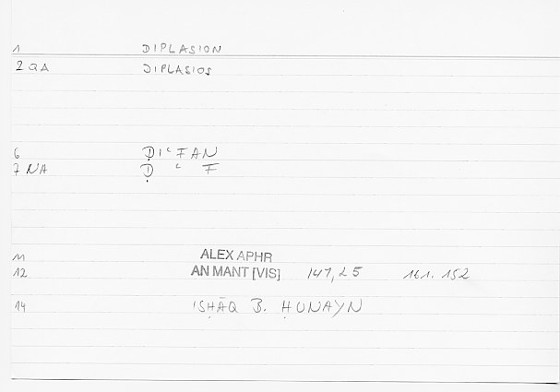 1 DIPLASION
2 QA DIPLASIOS
6 ḌIʿFAN
7 NA Ḍ ʿ F
11 ALEX APHR
12 AN MANT [VIS] 147,25 161.152
14 ISḤĀQ B. ḤUNAYN